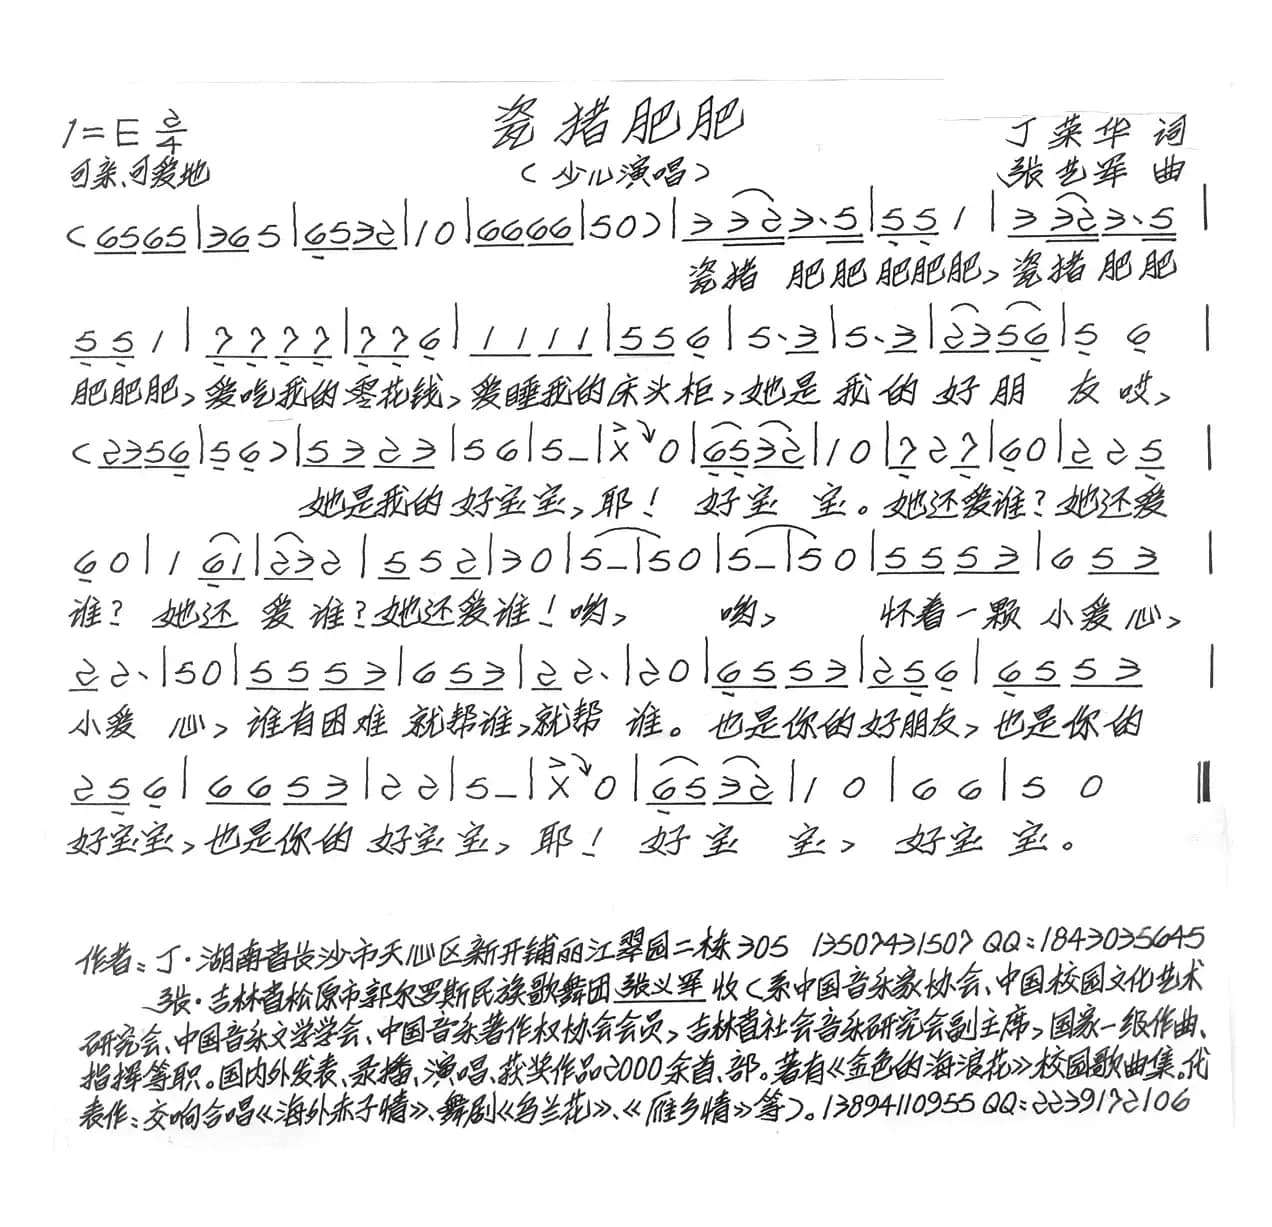 瓷猪肥肥
1=E 2/4
丁荣华 词
可亲、可爱地
（少儿演唱）
张艺军 曲
（6565|365|6532|10|6666|50）|3 323·5|55 1|3 323·5|
瓷猪 肥肥肥肥肥、瓷猪肥肥
55 1|7777|776|1111|556|5·3|5·3|2356|5 6|
肥肥肥、爱吃我的零花钱、爱睡我的床头柜、她是我的好朋 友哎、
（2356|56）|5323|56|5–|X 0|6532|10|727|60|225|
她是我的好宝宝、耶！ 好宝 宝。她还爱谁？她还爱
60|1 61|232|552|30|5–|50|5–|50|5553|653|
谁？ 她还 爱谁？她还爱谁！哟、 哟、 怀着一颗小爱心、
22·|50|5553|653|22·|20|6553|256|6553|
小爱 心、谁有困难就帮谁、就帮 谁。也是你的好朋友、也是你的
256|6653|22|5–|X 0|6532|10|66|50
好宝宝、也是你的好宝宝、耶！ 好宝 宝、 好宝宝。
作者：丁·湖南省长沙市天心区新开铺丽江翠园二栋305 13507431507 QQ：1843035645
张·吉林省松原市郭尔罗斯民族歌舞团张义军收（系中国音乐家协会、中国校园文化艺术
研究会、中国音乐文学学会、中国音乐著作权协会会员、吉林省社会音乐研究会副主席、国家一级作曲、
指挥等职。国内外发表、录播、演唱、获奖作品2000余首、部。著有《金色的海浪花》校园歌曲集。代
表作：交响合唱《海外赤子情》、舞剧《乌兰花》、《雁乡情》等）。13894110955 QQ：2239172106